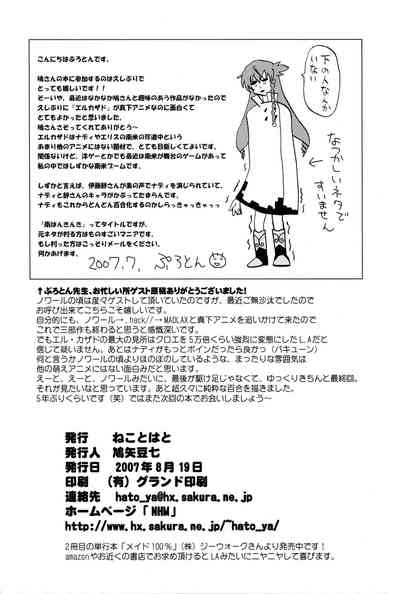 こんにちはぷろとんです。
鳩さんの本に参加するのは久しぶりで
とっても嬉しいです!!
そーいや、最近はなかなか鳩さんと趣味のあう作品がなかったので
久しぶりに「エルカザド」が真下アニメなのに面白くて
とてもよかったと思いました。
鳩さんさそってくれてありがとう〜
エルカザドはナディやエリスの南米の珍道中という
あまり他のアニメにはない題材で、とても目新しくてよいです。
関係ないけど、洋ゲーとかでも最近は南米が舞台のゲームがあって
私の中ではしずかな南米ブームです。
しずかと言えば、伊藤静さんが素の声でナディを演じられていて、
ナディと静さんのキャラがかぶってたまらんです。
ナディもこれからどんどん百合化するのかしらっきゃっきゃっっ
「南はんさんき」ってタイトルですが、
元ネタが判る方はものすごいマニアです。
もし判った方はこっそりメールをください。
何かあげます。
2007.7, ぷろとん
下の人なんか
いない
なつかしいネタで
すいません
↑ぷろとん先生、お忙しい所ゲスト原稿ありがとうございました!
ノワールの頃は度々ゲストして頂いていたのですが、最近ご無沙汰でしたので
お呼び出来てこちらこそ嬉しいです。
自分的にも、ノワール→.hack//→MADLAXと真下アニメを追いかけて来たので
これで三部作も終わると思うと感慨深いです。
でもエル・カザドの最大の見所はクロエを5万倍くらい強烈に変態にしたLAだと
信じて疑いません。あとはナディがもっとボインだったら良かっ（バキューン）
何と言うかノワールの頃よりほのぼのしているような、まったりな雰囲気は
他の萌えアニメにはない面白みだと思います。
えーと、えーと、ノワールみたいに、最後が駆け足じゃなくて、ゆっくりきちんと最終回。
それが見たいなと思っています。あと超久々に純粋な百合を描きました。
5年ぶりくらいです（笑）ではまた次回の本でお会いしましょう〜
発行　ねことはと
発行人　鳩矢豆七
発行日　2007年8月19日
印刷　（有）グランド印刷
連絡先　hato_ya@hx.sakura.ne.jp
ホームページ「NHM」
http://www.hx.sakura.ne.jp/~hato_ya/
2冊目の単行本「メイド100%」（株）ジーウォークさんより発売中です!
amazonやお近くの書店でお求め頂けるとLAみたいにニヤニヤして喜びます。